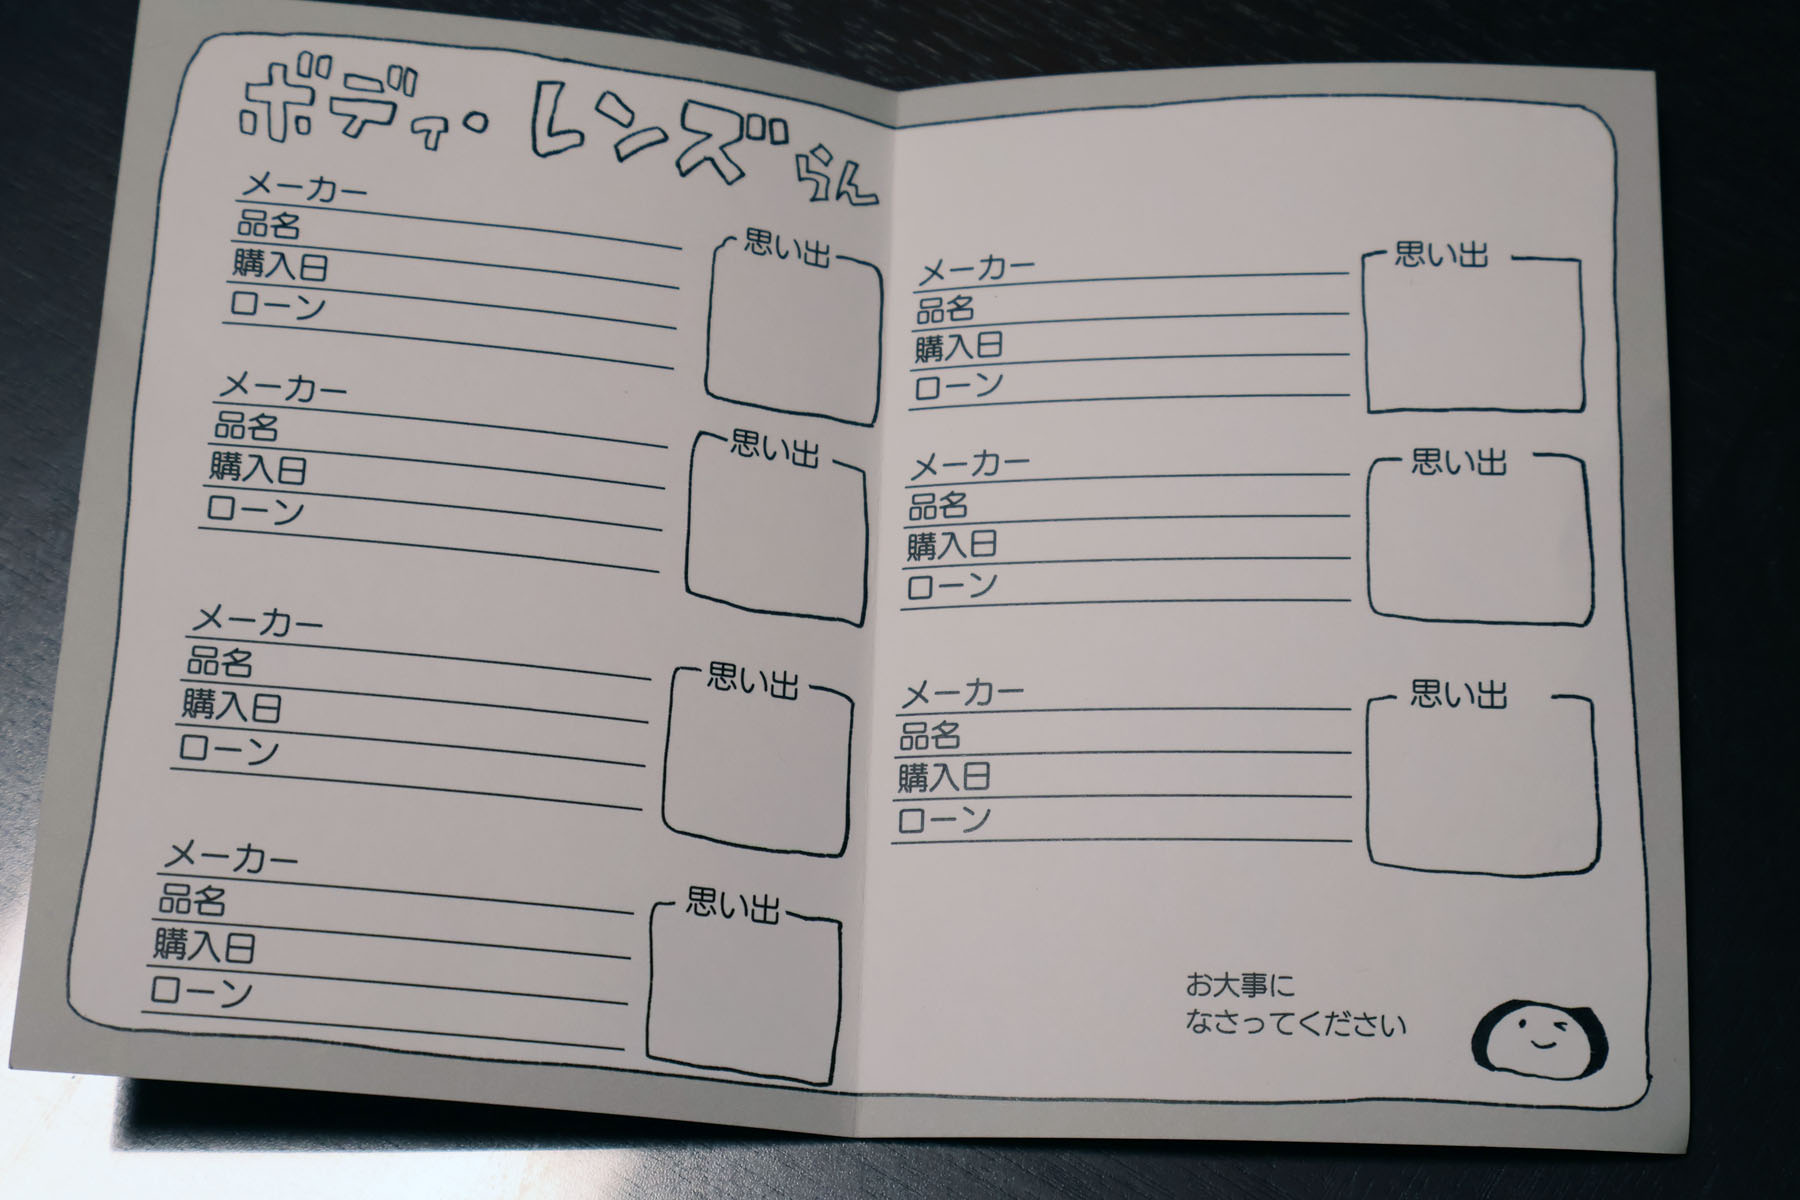 ボディ・レンズらん
メーカー
品名
購入日
ローン
思い出
メーカー
品名
購入日
ローン
思い出
メーカー
品名
購入日
ローン
思い出
メーカー
品名
購入日
ローン
思い出
メーカー
品名
購入日
ローン
思い出
メーカー
品名
購入日
ローン
思い出
メーカー
品名
購入日
ローン
思い出
お大事に
なさってください